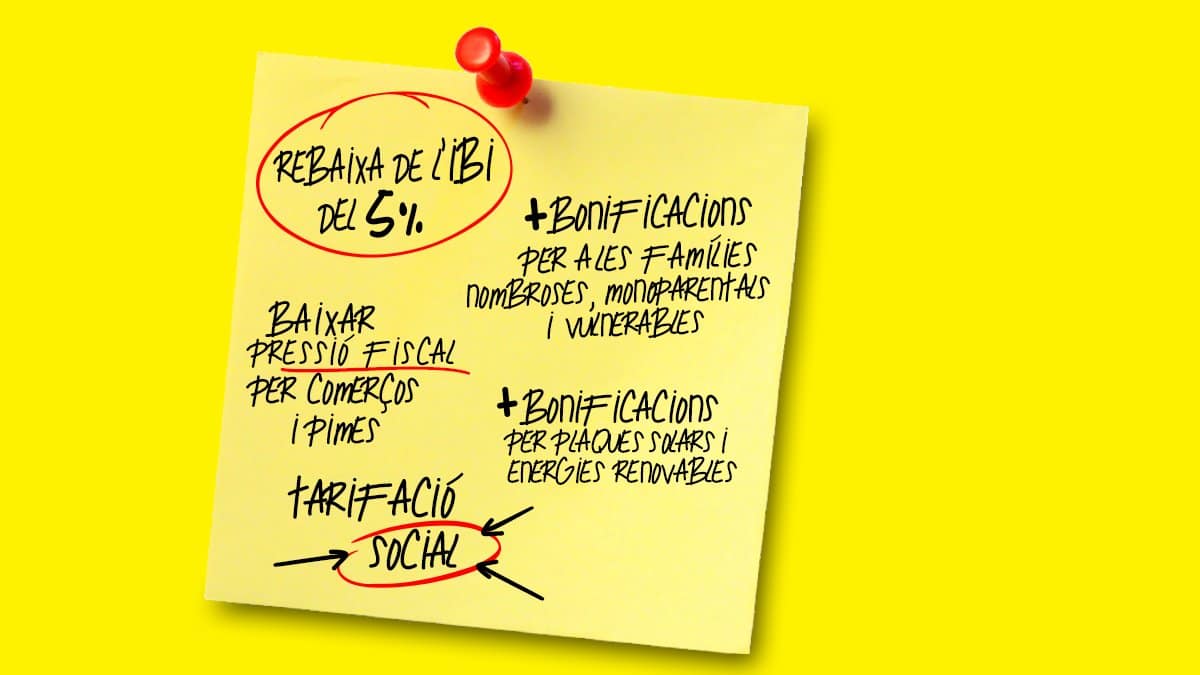 REBAIXA DE L'IBI
DEL 5%
BAIXAR
PRESSIÓ FISCAL
PER COMERÇOS
I PIMES
TARIFACIÓ
SOCIAL
+BONIFICACIONS
PER A LES FAMÍLIES
NOMBROSES, MONOPARENTALS
I VULNERABLES
+BONIFICACIONS
PER PLAQUES SOLARS I
ENERGIES RENOVABLES